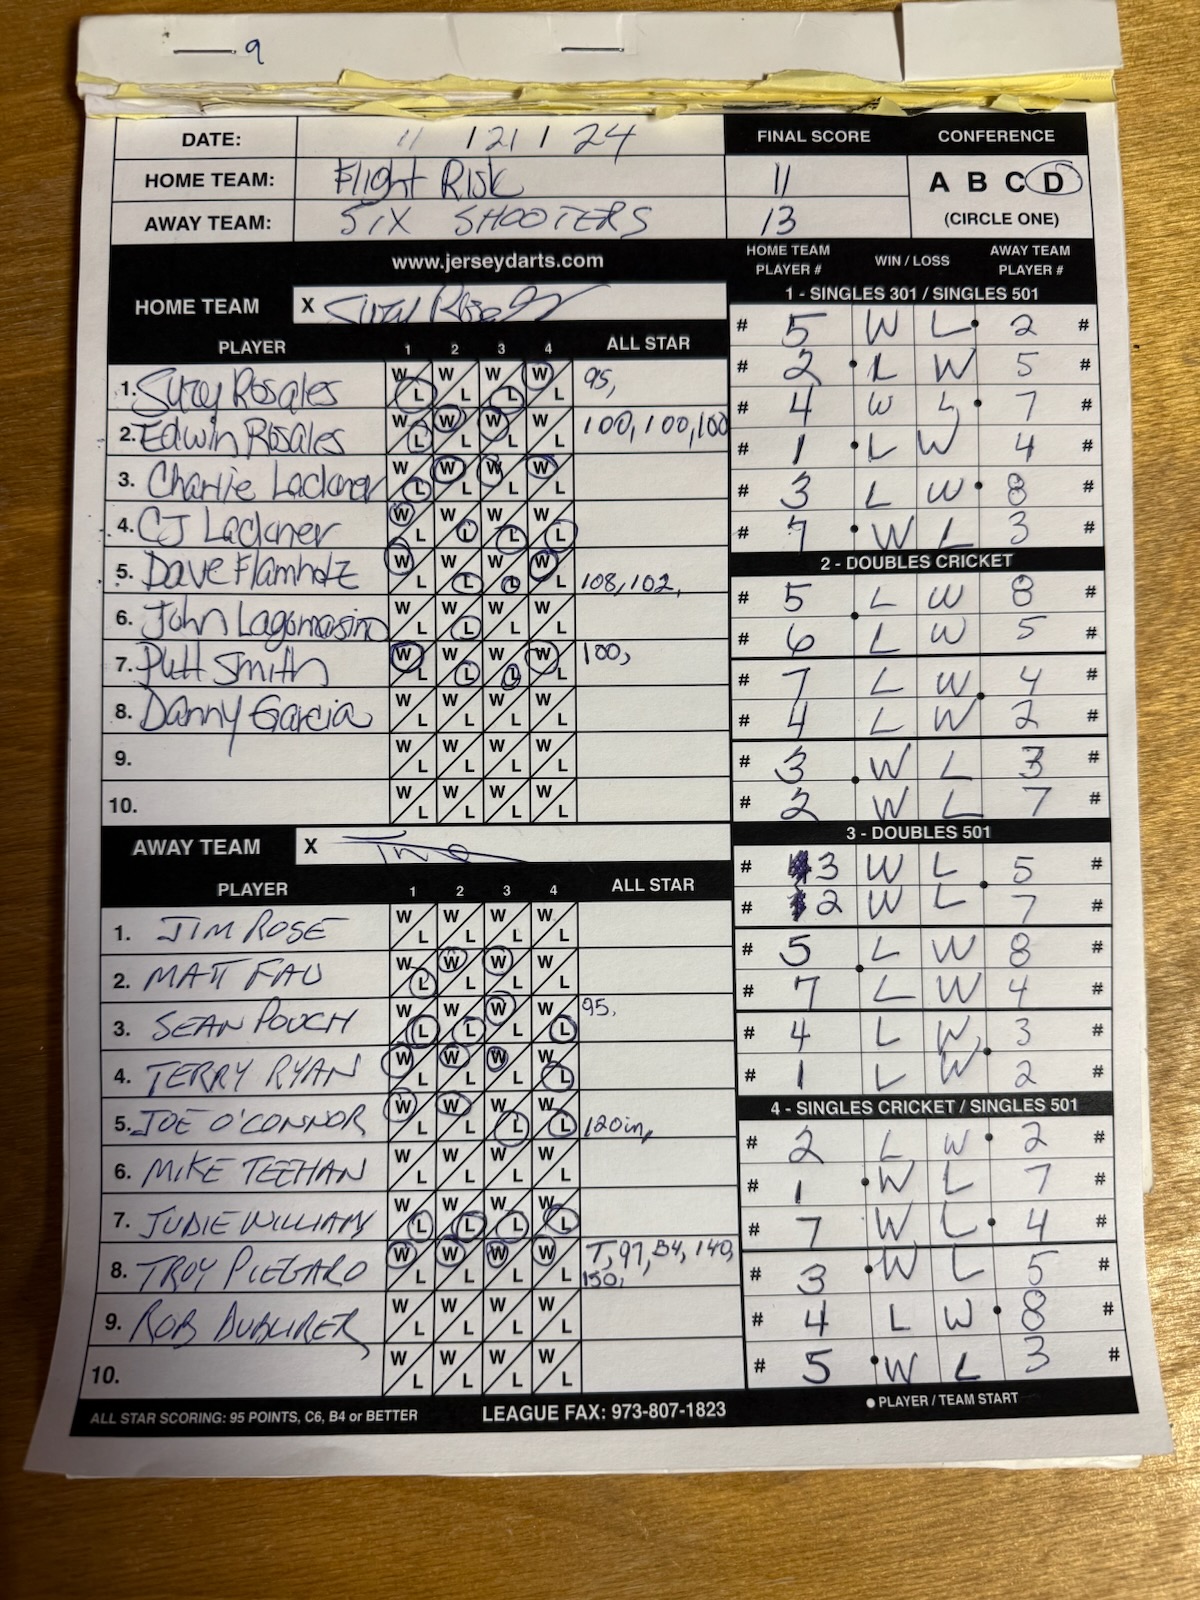 9
DATE: 11 / 21 / 24 FINAL SCORE CONFERENCE
HOME TEAM: Flight Risk 11 A B C D
AWAY TEAM: SIX SHOOTERS 13 (CIRCLE ONE)
www.jerseydarts.com
HOME TEAM X
PLAYER 1 2 3 4 ALL STAR
1. Suzy Rosales W L W L W L W L 95,
2. Edwin Rosales W L W L W L W L 100, 100, 100
3. Charlie Lackner W L W L W L W L
4. CJ Lackner W L W L W L W L
5. Dave Flamholtz W L W L W L W L 108, 102,
6. John Lagomasino W L W L W L W L
7. Putt Smith W L W L W L W L 100,
8. Danny Garcia W L W L W L W L
9. W L W L W L W L
10. W L W L W L W L
AWAY TEAM X
PLAYER 1 2 3 4 ALL STAR
1. JIM ROSE W L W L W L W L
2. MATT FAU W L W L W L W L
3. SEAN POUCH W L W L W L W L 95,
4. TERRY RYAN W L W L W L W L
5. JOE O'CONNOR W L W L W L W L 120in,
6. MIKE TEEHAN W L W L W L W L
7. JUDIE WILLIAMS W L W L W L W L
8. TROY W L W L W L W L T, 97, B4, 140,
150,
9. ROB W L W L W L W L
10. W L W L W L W L
ALL STAR SCORING: 95 POINTS, C6, B4 or BETTER LEAGUE FAX: 973-807-1823
HOME TEAM PLAYER # WIN / LOSS AWAY TEAM PLAYER #
1 - SINGLES 301 / SINGLES 501
# 5 W L 2 #
# 2 L W 5 #
# 4 W L 7 #
# 1 L W 4 #
# 3 L W 8 #
# 7 W L 3 #
2 - DOUBLES CRICKET
# 5 L W 8 #
# 6 L W 5 #
# 7 L W 4 #
# 4 L W 2 #
# 3 W L 3 #
# 2 W L 7 #
3 - DOUBLES 501
# 3 W L 5 #
# 2 W L 7 #
# 5 L W 8 #
# 7 L W 4 #
# 4 L W 3 #
# 1 L W 2 #
4 - SINGLES CRICKET / SINGLES 501
# 2 L W 2 #
# 1 W L 7 #
# 7 W L 4 #
# 3 W L 5 #
# 4 L W 8 #
# 5 W L 3 #
● PLAYER / TEAM START